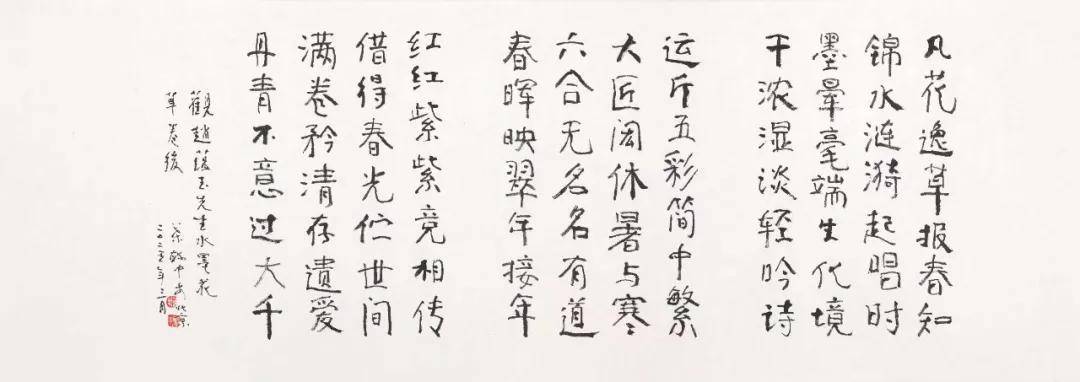 凡花逸草报春知
錦水涟漪起唱时
墨晕毫端生化境
干浓湿淡轻吟诗
运斤五彩简中繁
大匠闳休暑与寒
六合无名名有道
春晖映翠年接年
红红紫紫竞相传
借得春光伫世间
满卷矜清存遗爱
丹青不意过大千
觀趙蕴玉先生水墨花
草卷後
二〇二五年三月